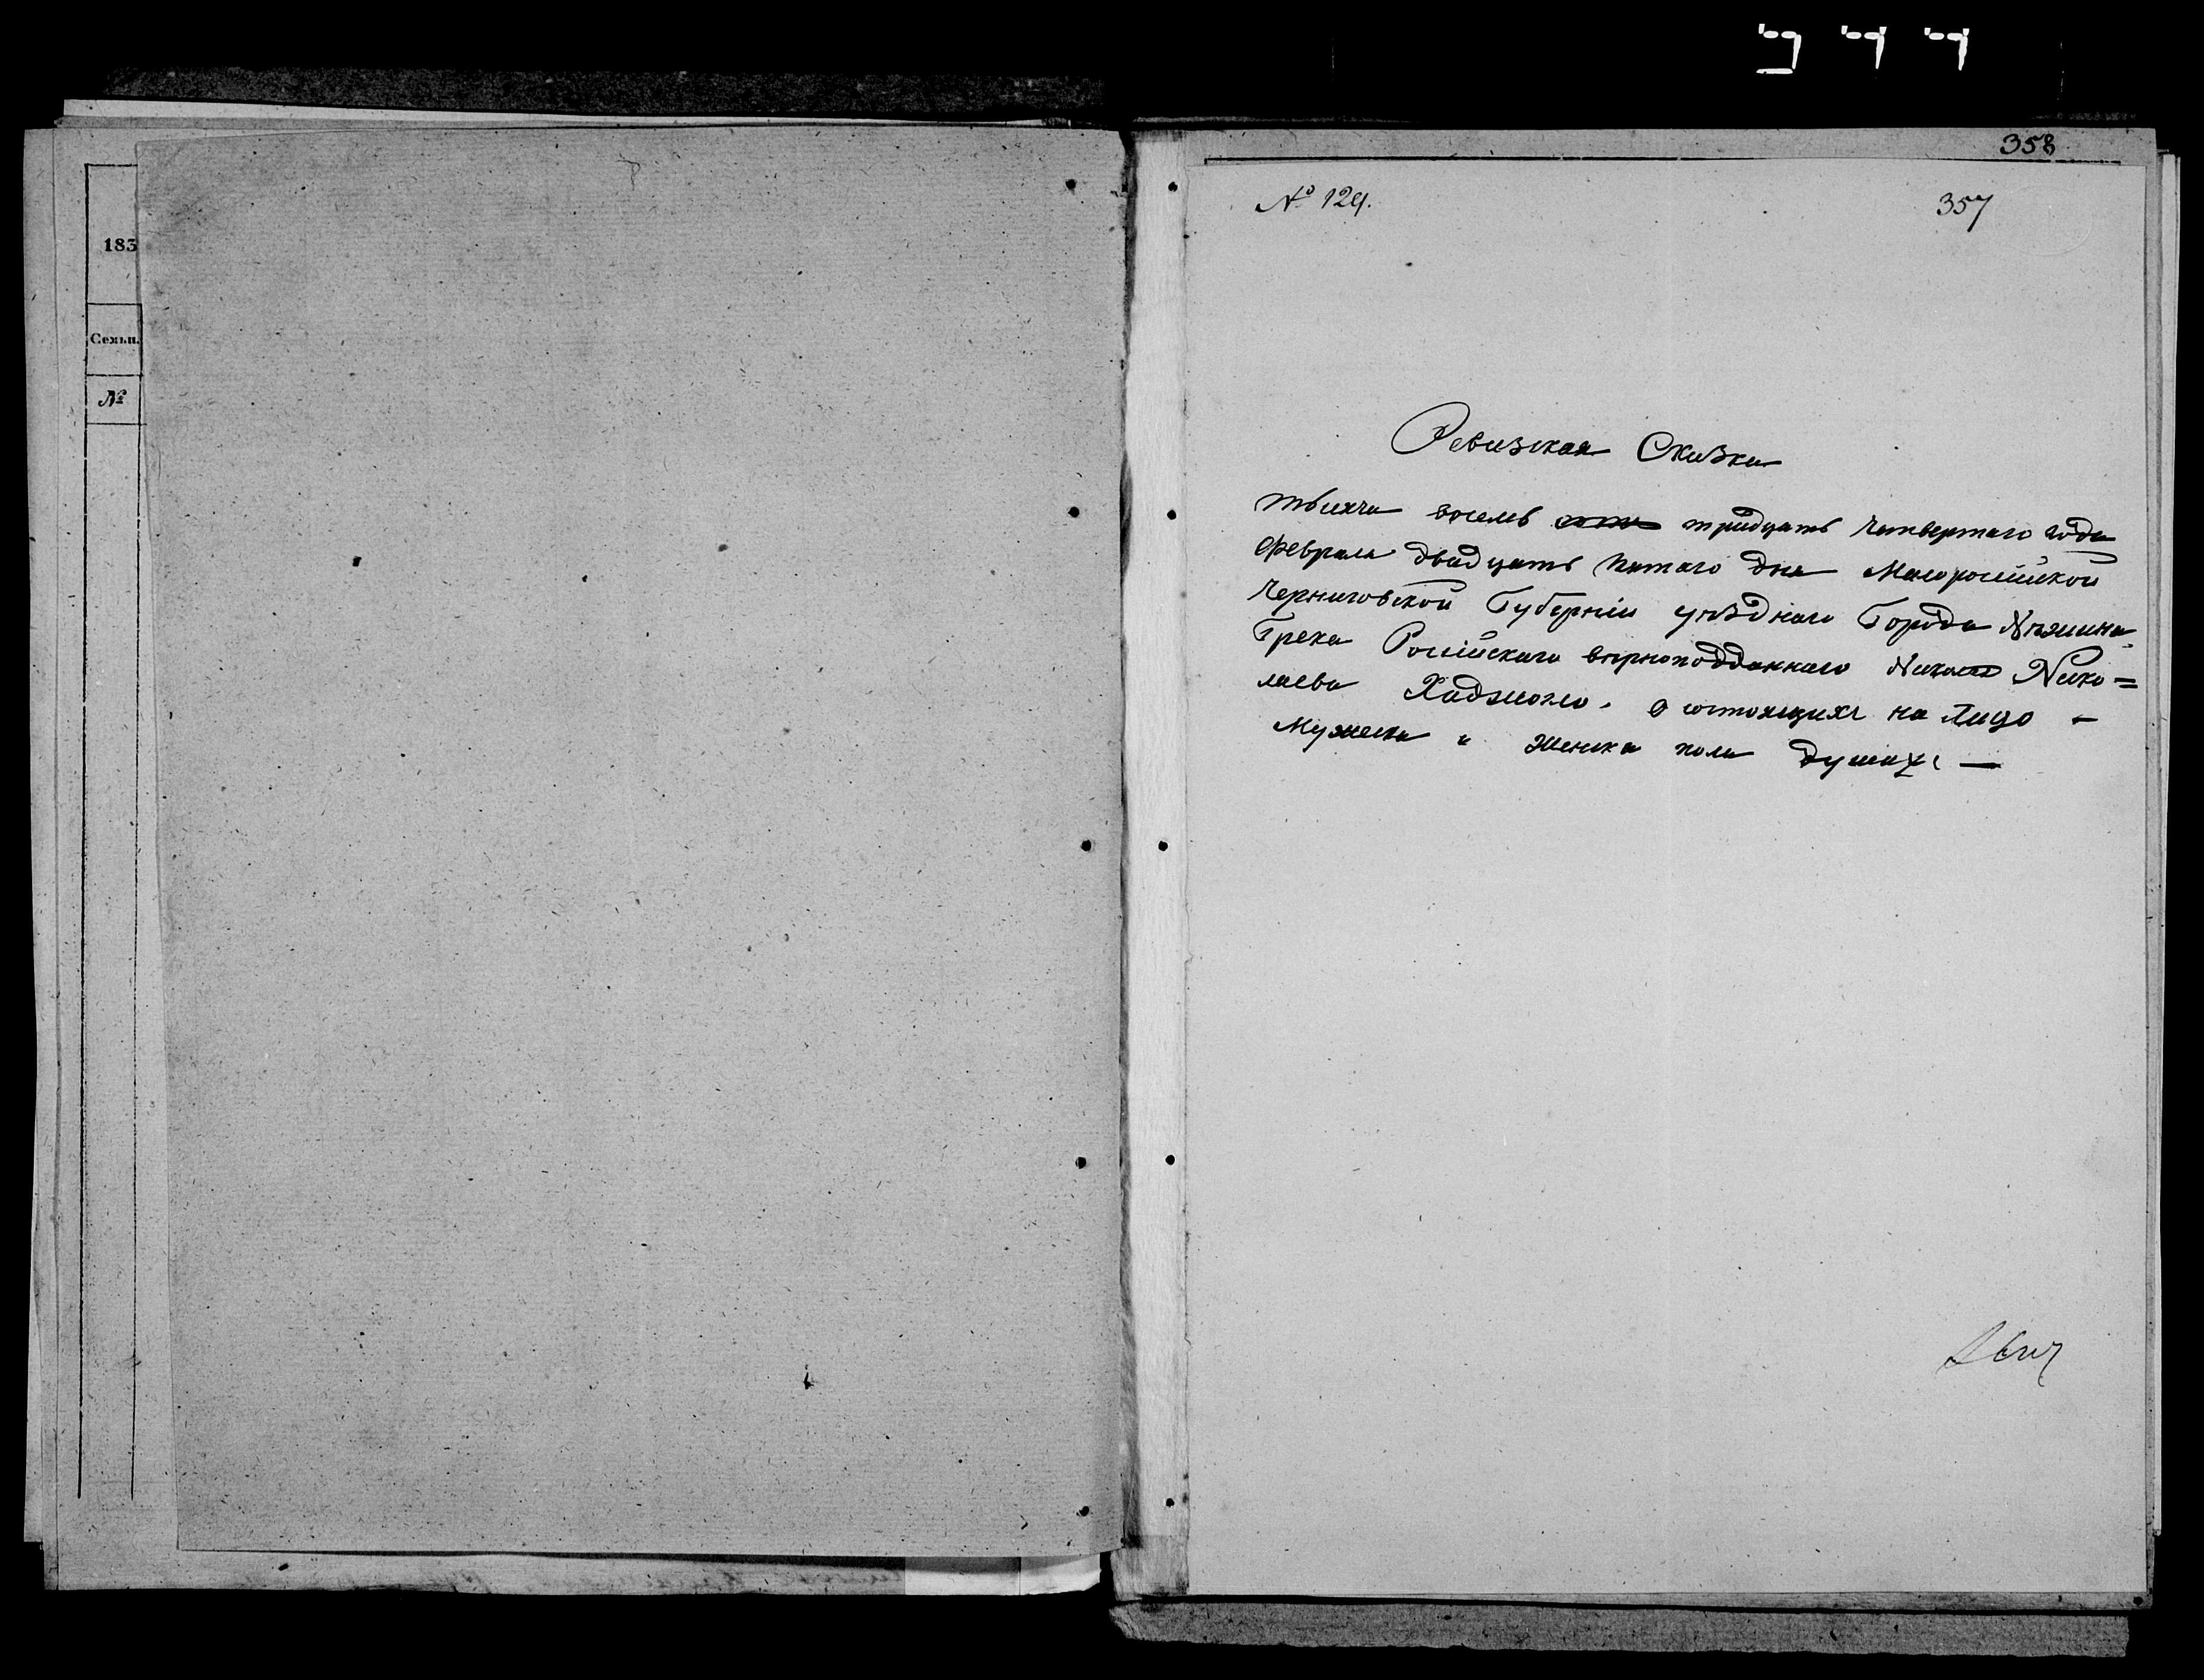 183
Семьи.
№
358
№ 129.
357
Ревизская Сказка
тысяча восемь сотъ тридцать четвертаго года
Февраля двадцать пятаго дня Малоросийской
Черниговской Губерніи уѣзднаго Города Нѣжина
Грека Росийскаго вѣрноподданнаго Николая Нико=
лаева Хаджопло. о состоящихъ на лицо -
Мужеска и женска пола душахъ —